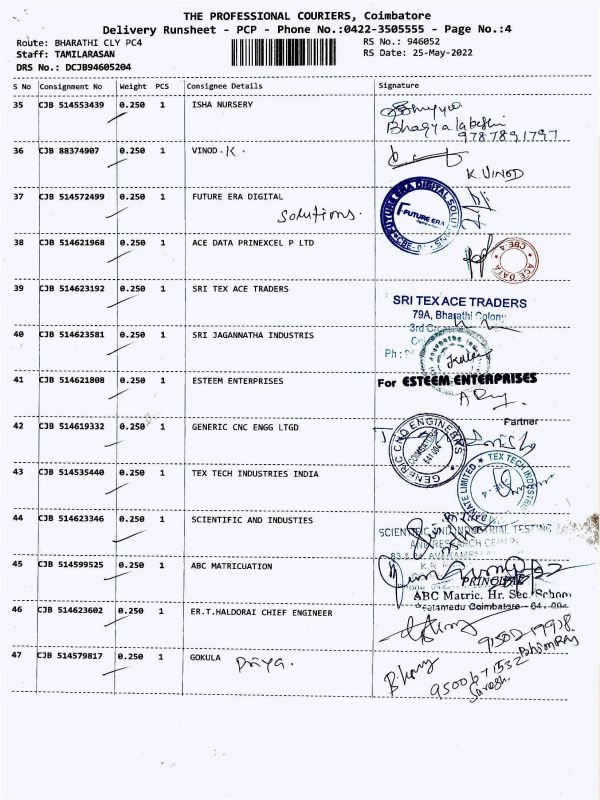 THE PROFESSIONAL COURIERS, Coimbatore
Delivery Runsheet - PCP - Phone No.:0422-3505555 - Page No.:4
Route: BHARATHI CLY PC4
RS No.: 946052
Staff: TAMILARASAN
RS Date: 25-May-2022
DRS No.: DCJB94605204
S No Consignment No Weight PCS Consignee Details Signature
35 CJB 514553439 0.250 1 ISHA NURSERY
Bhagyalakshmi
9787891797
36 CJB 88374907 0.250 1 VINOD.K.
K.VINOD
37 CJB 514572499 0.250 1 FUTURE ERA DIGITAL
Solutions.
FUTURE ERA DIGITAL SOLUTIONS
FUTURE ERA
38 CJB 514621968 0.250 1 ACE DATA PRINEXCEL P LTD
ACE DATA CBE-4
39 CJB 514623192 0.250 1 SRI TEX ACE TRADERS
SRI TEX ACE TRADERS
79A, Bharathi Colony
3rd
40 CJB 514623581 0.250 1 SRI JAGANNATHA INDUSTRIS
Ph :
41 CJB 514621808 0.250 1 ESTEEM ENTERPRISES
For ESTEEM ENTERPRISES
Partner
42 CJB 514619332 0.250 1 GENERIC CNC ENGG LTGD
GENERIC CNC ENGINEERS
COIMBATORE
641 004
43 CJB 514535440 0.250 1 TEX TECH INDUSTRIES INDIA
TEX TECH INDUSTRIES PRIVATE LIMITED
44 CJB 514623346 0.250 1 SCIENTIFIC AND INDUSTIES
SCIENTIFIC AND INDUSTRIAL TESTING
AND RESEARCH CENTRE
45 CJB 514599525 0.250 1 ABC MATRICUATION
PRINCIPAL
ABC Matric. Hr. Sec. School
Coimbatore - 64
46 CJB 514623602 0.250 1 ER.T.HALDORAI CHIEF ENGINEER
47 CJB 514579817 0.250 1 GOKULA Priya.
9500671532